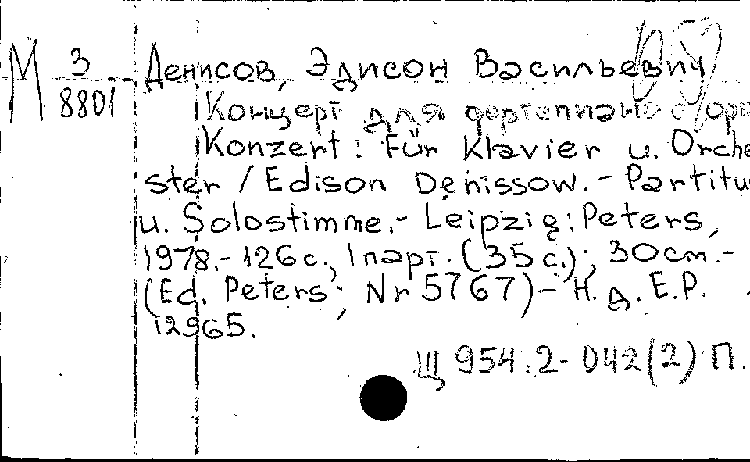 М 3/8801
Денисов, Эдисон Васильевич
Концерт для фортепиано с орк
Konzert: Für Klavier u. Orche
ster / Edison Denissow. - Partitu
u. Solostimme. - Leipzig: Peters,
1978. - 126 с., 1 парт. (35 с.); 30 см. -
(Ed. Peters; Nr 5767) - Н. д. E.P.
12965.
Щ 954.2-042(2) П.